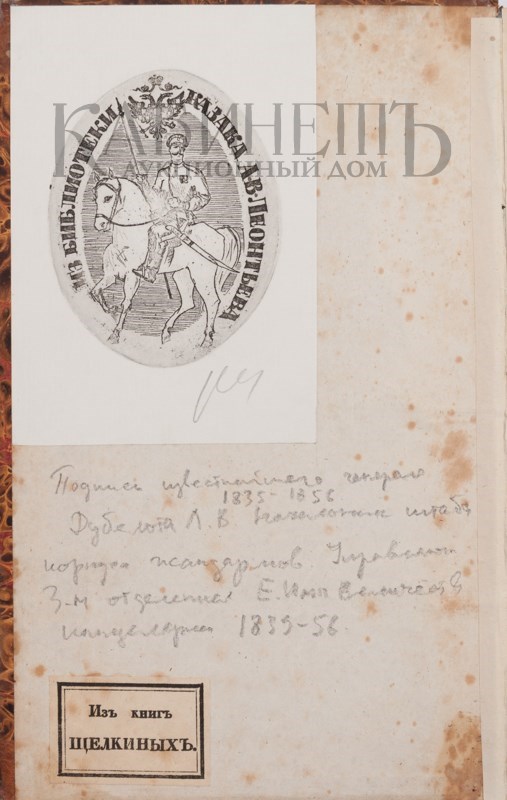 КАБИНЕТЪ
АУКЦИОННЫЙ ДОМ
ИЗ БИБЛИОТЕКИ КАЗАКА АВ·ЛЕОНТЬЕВА
Подпись известнейшего генерала
1835-1856
Дубельта Л.В. Начальник штаба
корпуса жандармов Управляющ
3-м отделения Е. Имп Величеств
канцелярии 1839-56.
Изъ книгъ
ЩЕЛКИНЫХЪ.